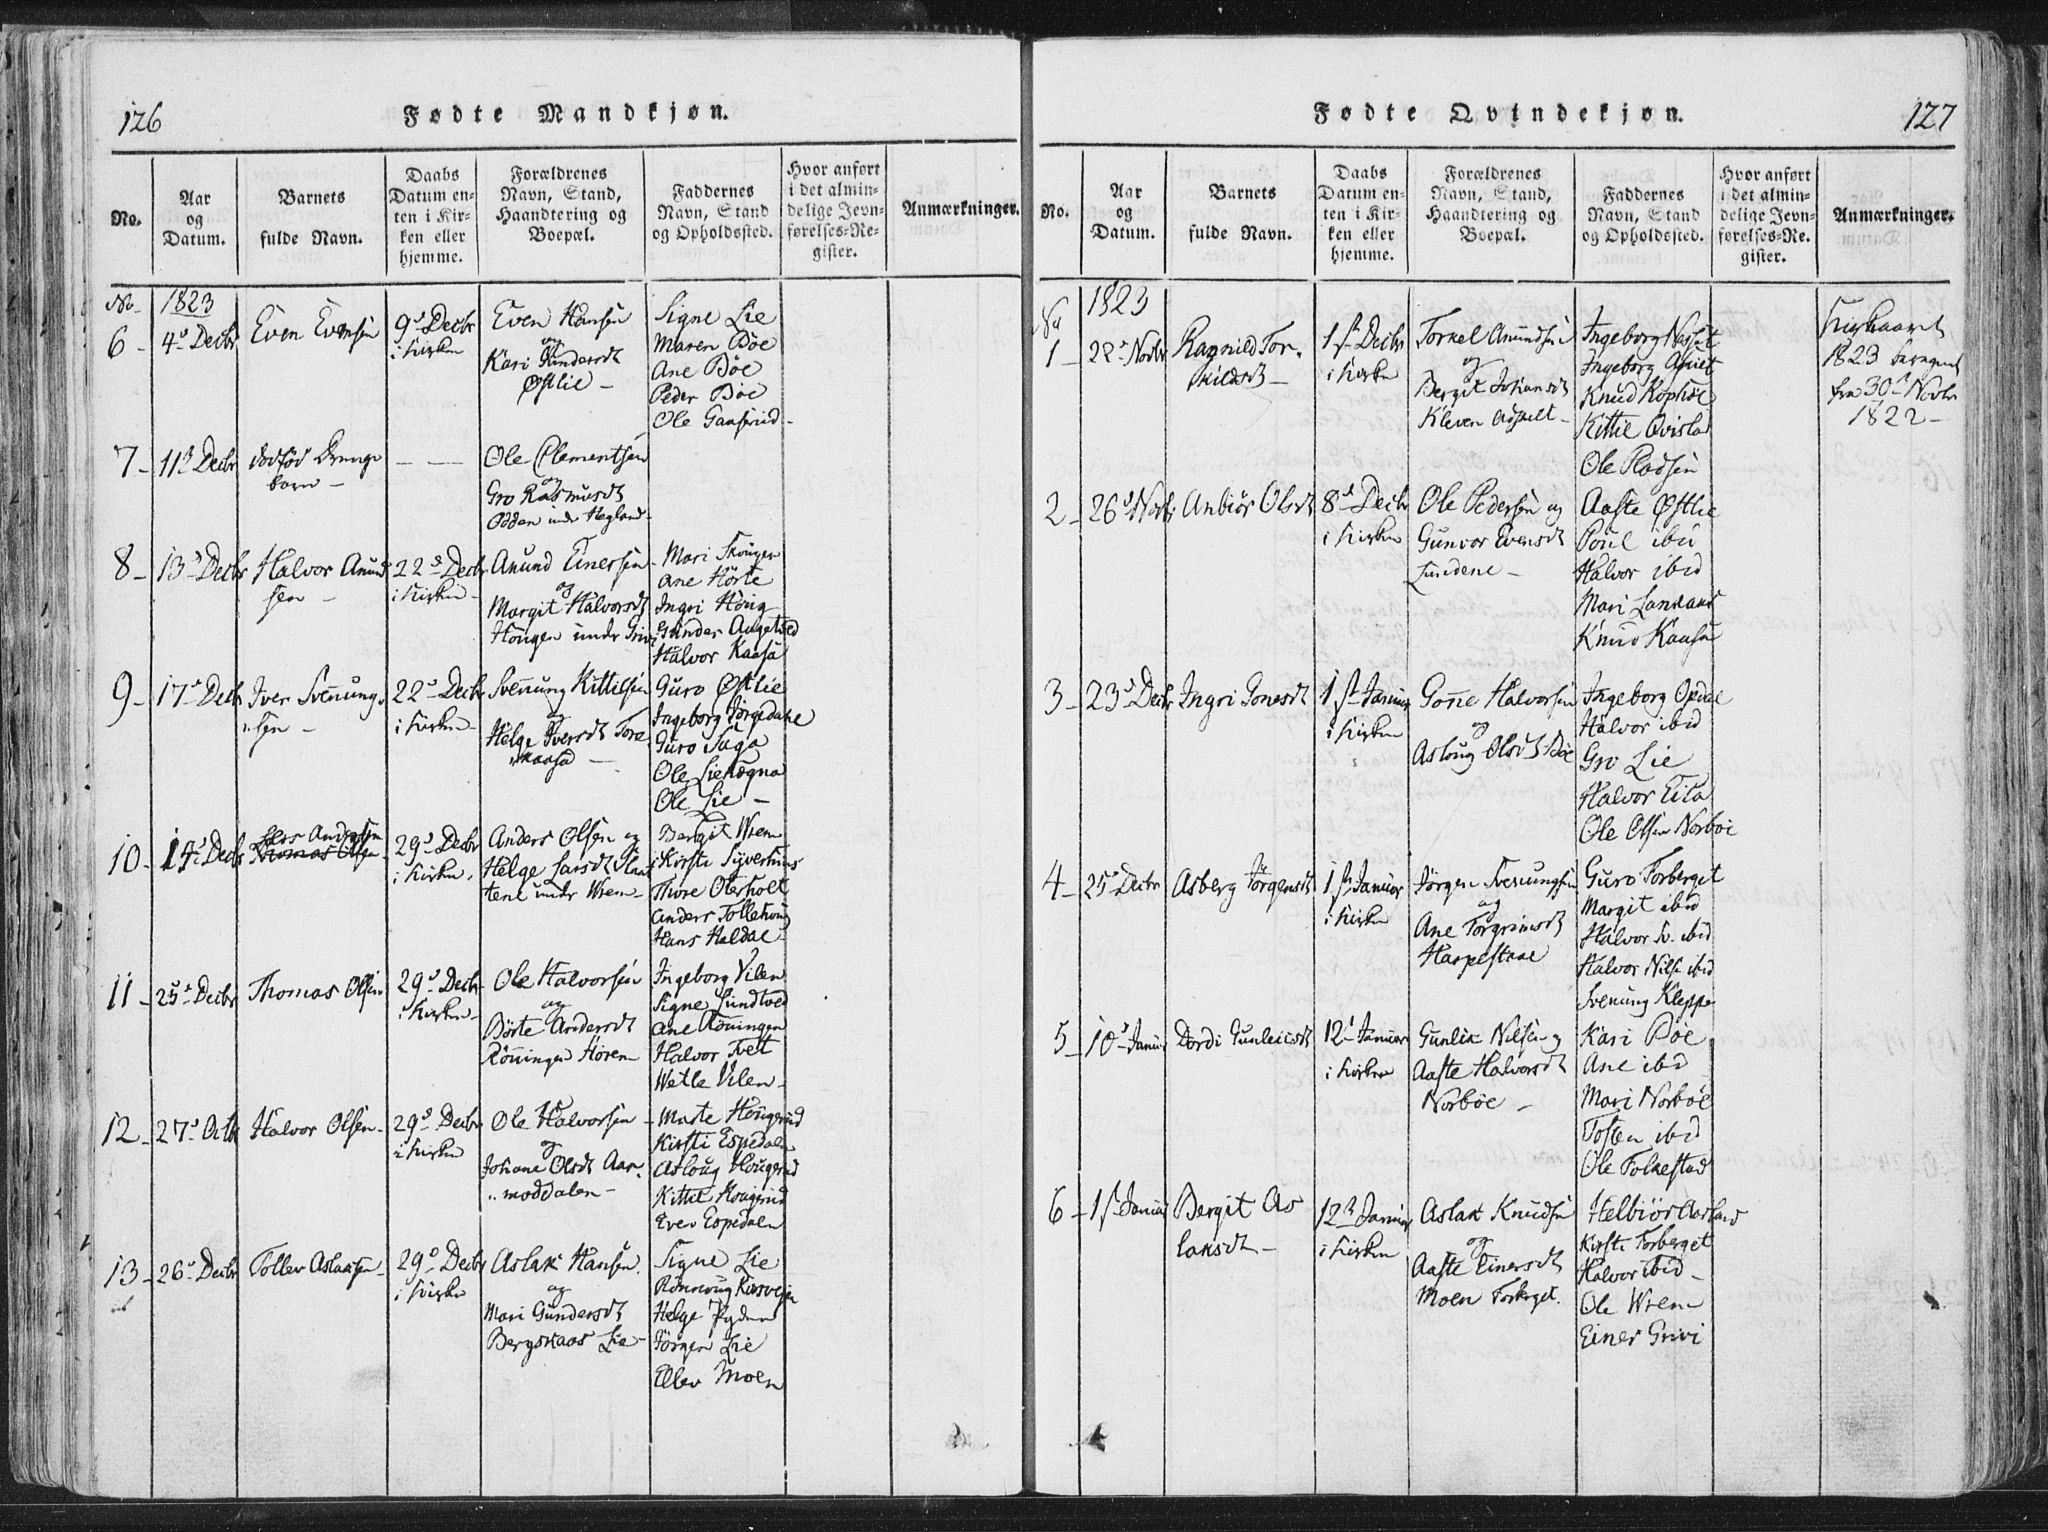 126
Fødte Mandkjøn.
No.
Aar og Datum.
Barnets fulde Navn.
Daabs Datum enten i Kirken eller hjemme.
Forældrenes Navn, Stand, Haandtering og Boepæl.
Faddernes Navn, Stand og Opholdssted.
Hvor anført i det almindelige Jevnførelses-Register.
Anmærkninger.
No 1823
6 - 4d Decbr
Even Evensen
9d Decbr
i Kirken
Even Hansen
og
Kari
Østlie -
Signe Lie
Maren Böe
Ane Böe
Peder Böe
Ole
7 - 11d Decbr
dødfød Drenge
barn -
Ole Clementsen
og
Gro Rasmusdt
Odden undr Hegland
8 - 13d Decbr
Halvor Anund
sen -
22d Decbr
i Kirken -
Anund Einersen
og
Margit Halvorsdt
Haugen undr Grivi
Mari
Ane Hörte
Ingri
Gunder
Halvor Kaasa
9 - 17d Decbr
Iver Svenung
sen -
22d Decbr
i Kirken -
Svenung Kittilsen
og
Helge Iversdt Tore
kaasa -
Guro Østlie
Ingeborg
Guro Saga
Ole
Ole Lie -
10 - 14d Decbr
Lars Andersen
Thomas Olsen
29d Decbr
i Kirken.
Anders Olsen og
Helge Larsdt Slaat
tene undr Wrem -
Bergit Wrem
Kirsti
Thore Oterholt
Anders
Hans Haldal
11 - 25d Decbr
Thomas Olsen
29d Decbr
i Kirken -
Ole Halvorsen
og
Börte Andersdt
Rönningen Hören
Ingeborg Vilen
Signe Sundtved
Ane Rönningen
Halvor Tvet
Wetle Vilen -
12 - 27d Octbr
Halvor Olsen -
29d Decbr
i Kirken
Ole Halvorsen
og
Johane Olsdt Aar
moddalen -
Marte Hougrud
Kirsti Espedalen
Aslaug Hougrud
Kittil Hougrud
Even Espedalen
13 - 26d Decbr
Tollev Aslaksen -
29d Decbr
i Kirken
Aslak Hansen
og
Mari Gundersdt
Bergskaas Lie -
Signe Lie
Rönnoug
Helge
Jörgen Lie
Ellev Moen
127
Fødte Qvindekjøn.
No.
Aar og Datum.
Barnets fulde Navn.
Daabs Datum enten i Kirken eller hjemme.
Forældrenes Navn, Stand, Haandtering og Boepæl.
Faddernes Navn, Stand og Opholdssted.
Hvor anført i det almindelige Jevnførelses-Re. gister.
Anmærkninger.
No 1823
1 - 22d Novbr
Ragnild Tor
kildsdt -
1st Decbr
i Kirken
Torkel Amundsen
og
Bergit Johansdt
Kleven
Ingeborg
Ingeborg
Knud
Kittil Qvislad
Ole
Kirkeaaret
1823 beregnet
fra 30d Novbr
1822 -
2 - 26d Novbr
Anbiör Olsdt
8d Decbr
i Kirken
Ole Pedersen og
Gunvor Evensdt
Lundene -
Aaste Østlie
Poul ibid
Halvor ibid
Mari
Knud Kaasa
3 - 23d Decbr
Ingri Gonesdt
1st Januar
i Kirken
Gone Halvorsen
og
Asloug Olsdt Böe
Ingeborg Opdal
Halvor ibid
Gro Lie
Halvor Eika
Ole Olsen Norböe
4 - 25d Decbr
Asberg Jörgensdt
1st Januar
i Kirken
Jörgen Svenungsen
og
Ane Torgrimsdt
Harpestaae
Guro Forberget
Margit ibid
Halvor Sv. ibid
Halvor Nilsen ibid
Svenung Kleppe
5 - 10d Januar
Dordi Gunleiksdt
12d Januar
i Kirken
Gunleik Nilsen og
Aaste Halvorsdt
Norböe -
Kari Böe
Ane ibid
Mari Norböe
Tosten ibid
Ole Folkestad
6 - 1st Januar
Bergit As
laksdt -
12d Januar
i Kirken
Aslak Knudsen
og
Aaste Einersdt
Moen Forberget.
Helbiör Aarland
Kirsti Forberget
Halvor ibid -
Ole Wrem
Einer Grivi